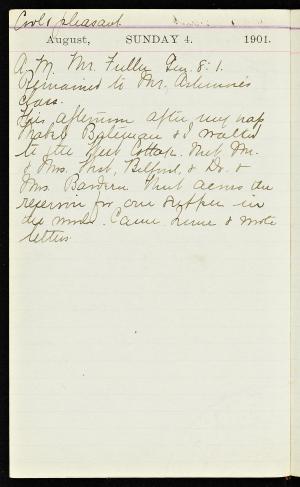 Cool & pleasant
August, SUNDAY 4. 1901.
A. M. Mr. Fuller Gen. 8:1.
Remained to Mr.
class.
This afternoon after my nap
Mabel Bateman & I walked
to the Cottage. Met Mr.
& Mrs. & Dr. &
Mrs. went across the
reservoir for our supper in
the woods. Came home & wrote
letters.